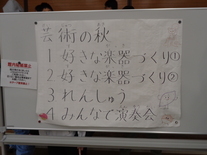 芸術の秋
1 好きな楽器づくり①
2 好きな楽器づくり②
3 れんしゅう
4 みんなで演奏会